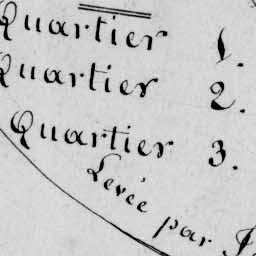 Quartier 1.
Quartier 2.
Quartier 3.
Levée par